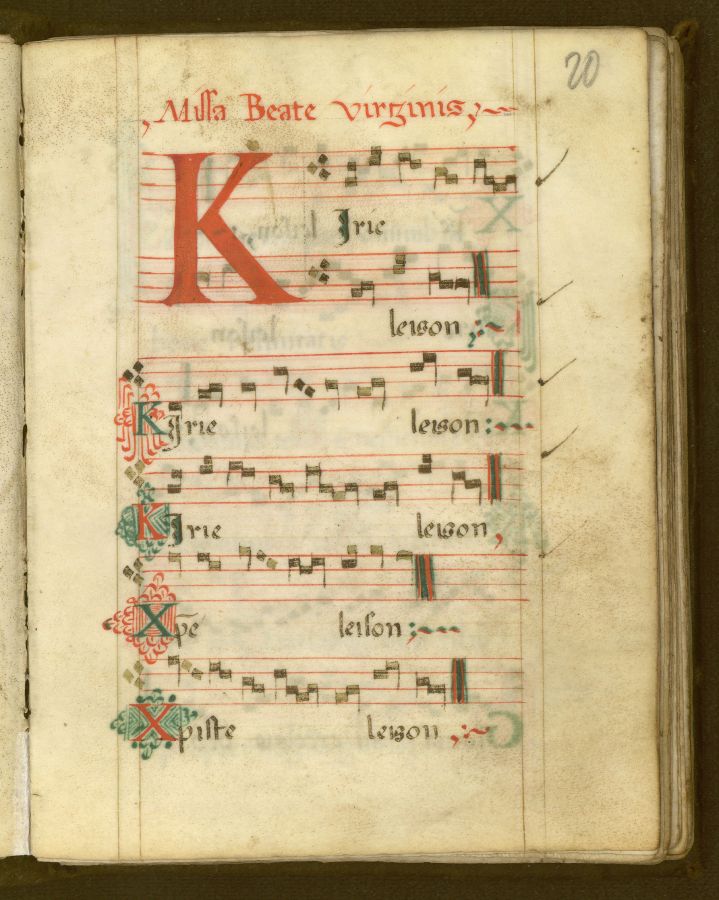 20
Missa Beate virginis
K Jrie
leison
K Jrie leison
K Jrie leison
Xp̄e leison
Xpiste leison